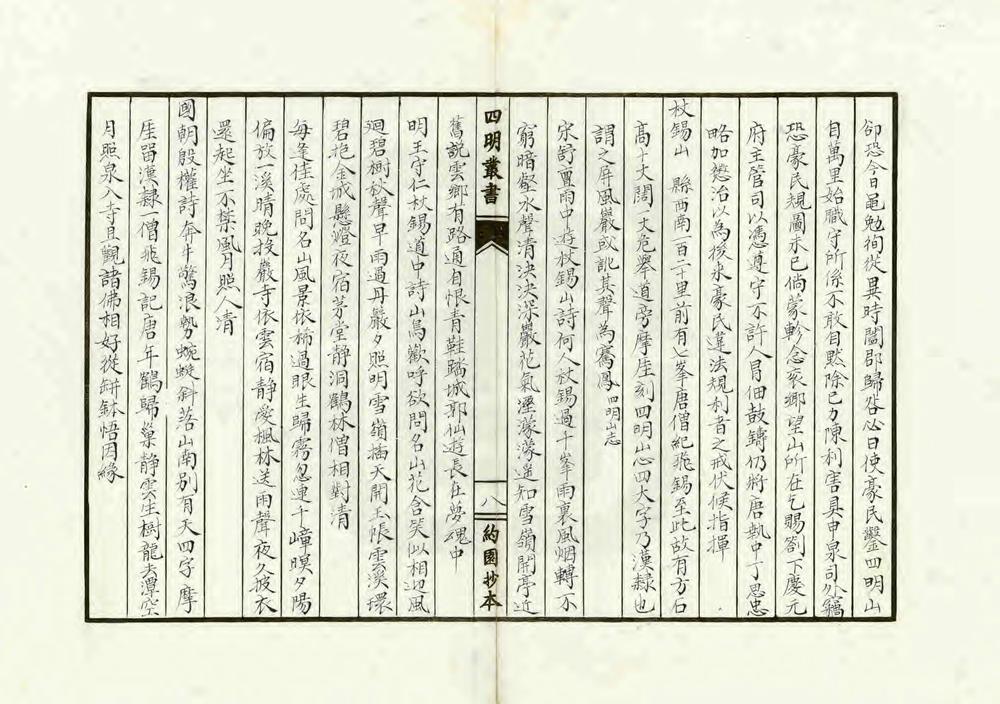 卻恐今日黽勉徇從異時闔郡歸咎必曰使豪民鑿四明山
自萬里始職守所係不敢自默除已力陳利害具申泉司外竊
恐豪民規圖未已倘蒙軫念衮鄉望山所在乞賜劄下慶元
府主管司以憑遵守不許人員佃鼓鑄仍將唐執中丁思忠
略加懲治以為後來豪民違法規利者之戒伏候指揮
杖錫山 縣西南一百二十里前有七峯唐僧紀飛錫至此故有方石
高十丈闊一丈危舉道旁摩崖刻四明山心四大字乃漢隸也
謂之屏風巖或訛其聲為鶱鳳四明山志
宋舒亶雨中遊杖錫山詩何人杖錫過千峯雨裏風烟轉不
窮暗壑水聲清決決深巖花氣溼濛濛遥知雪嶺開亭近
舊說雲鄉有路通自恨青鞋踏城郭仙遊長在夢魂中
明王守仁杖錫道中詩山鳥歡呼欲問名山花含笑似相迎風
迴碧樹秋聲早雨過丹巖夕照明雪嶺插天開玉帳雲溪環
碧抱金城懸燈夜宿茅堂靜洞鶴林僧相對清
每逢佳處問名山風景依稀過眼生歸霧忽連千嶂暝夕陽
偏放一溪晴晚投巖寺依雲宿靜愛楓林送雨聲夜久披衣
還起坐不禁風月照人清
國朝殷權詩奔牛驚浪勢蜿蜒斜落山南別有天四字摩
厓留漢隸一僧飛錫記唐年鶴歸巢靜雲生樹龍去潭空
月照泉入寺且觀諸佛相好從缾鉢悟因緣
四明叢書
八
約園抄本